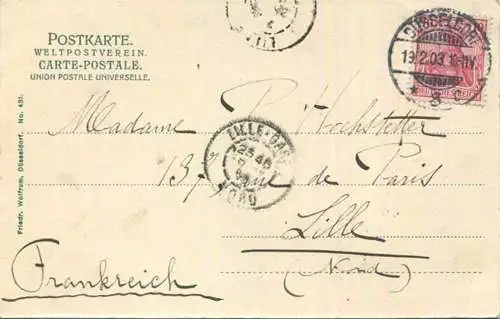 POSTKARTE.
WELTPOSTVEREIN.
CARTE-POSTALE.
UNION POSTALE UNIVERSELLE.
LILLE
DÜSSELDORF
19.2.03.10-11V.
Friedr. Wolfrum, Düsseldorf. No. 431.
Madame P. Hochstetter
LILLE-GARE
NORD
137, rue de Paris
Lille
(Nord)
Frankreich